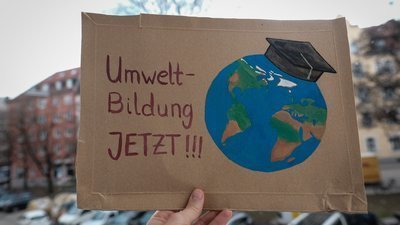 Umwelt-
Bildung
JETZT!!!